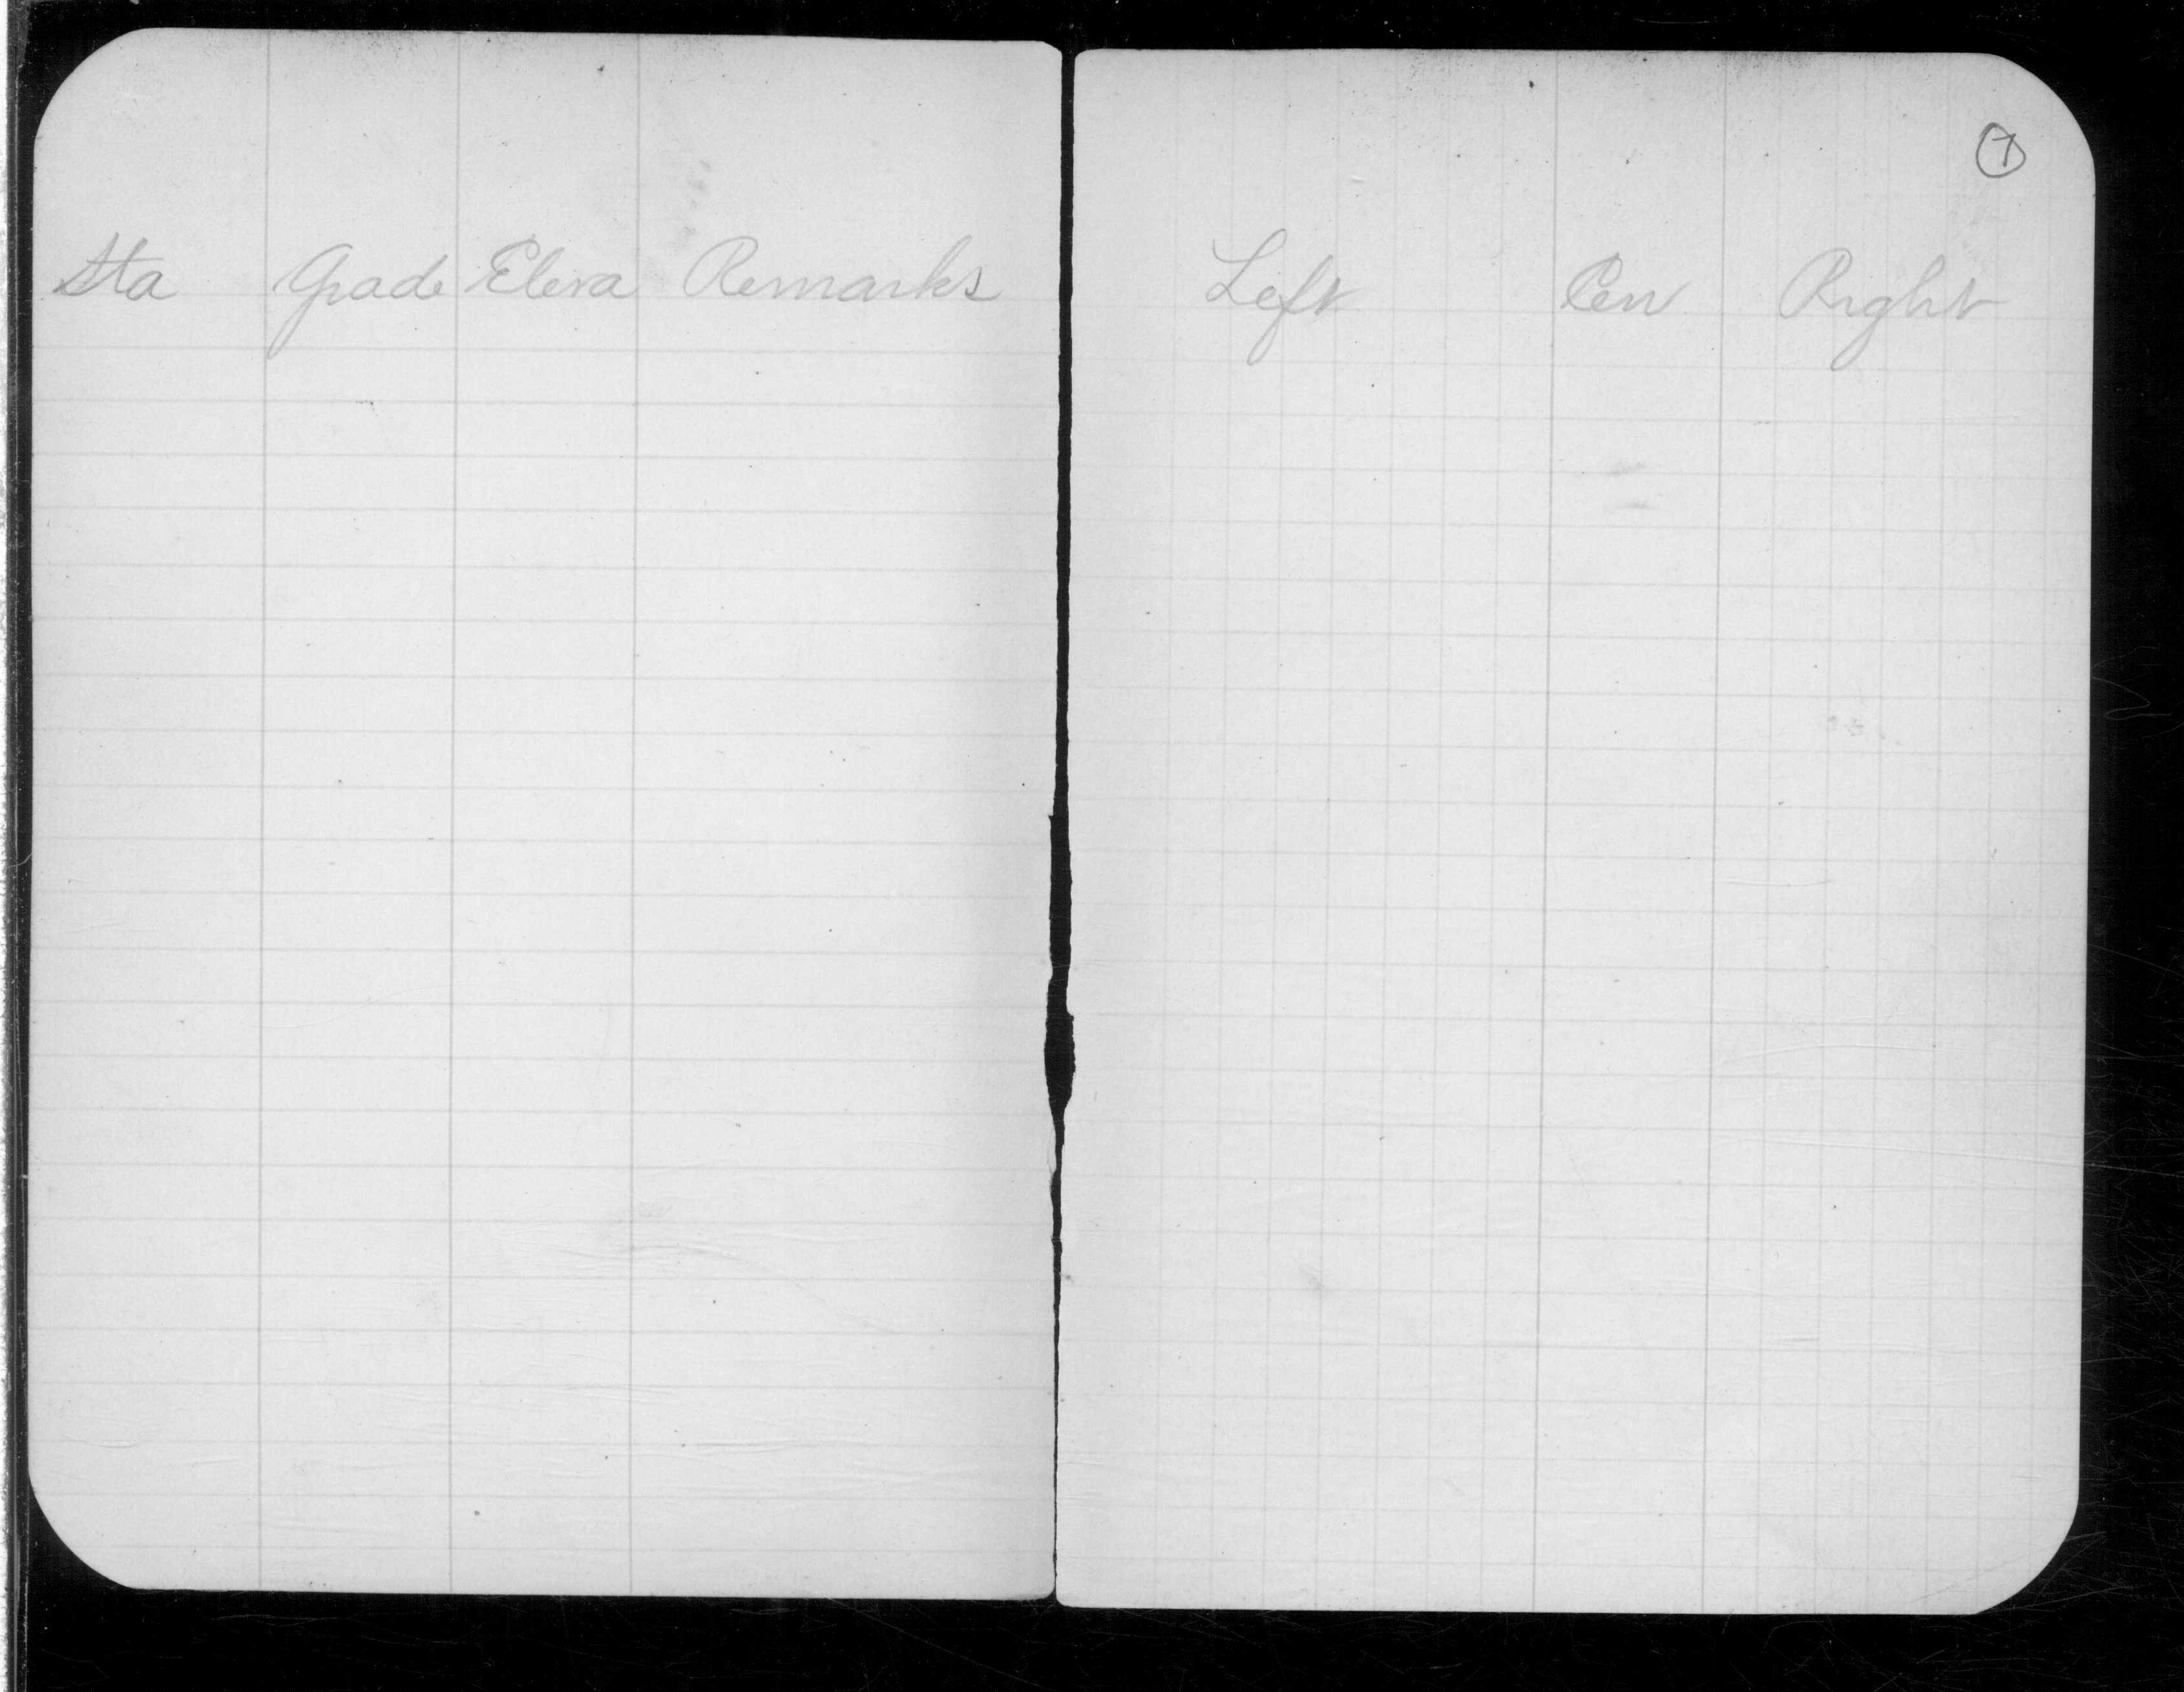 7
Sta Grade Eleva Remarks
Left Cen Right